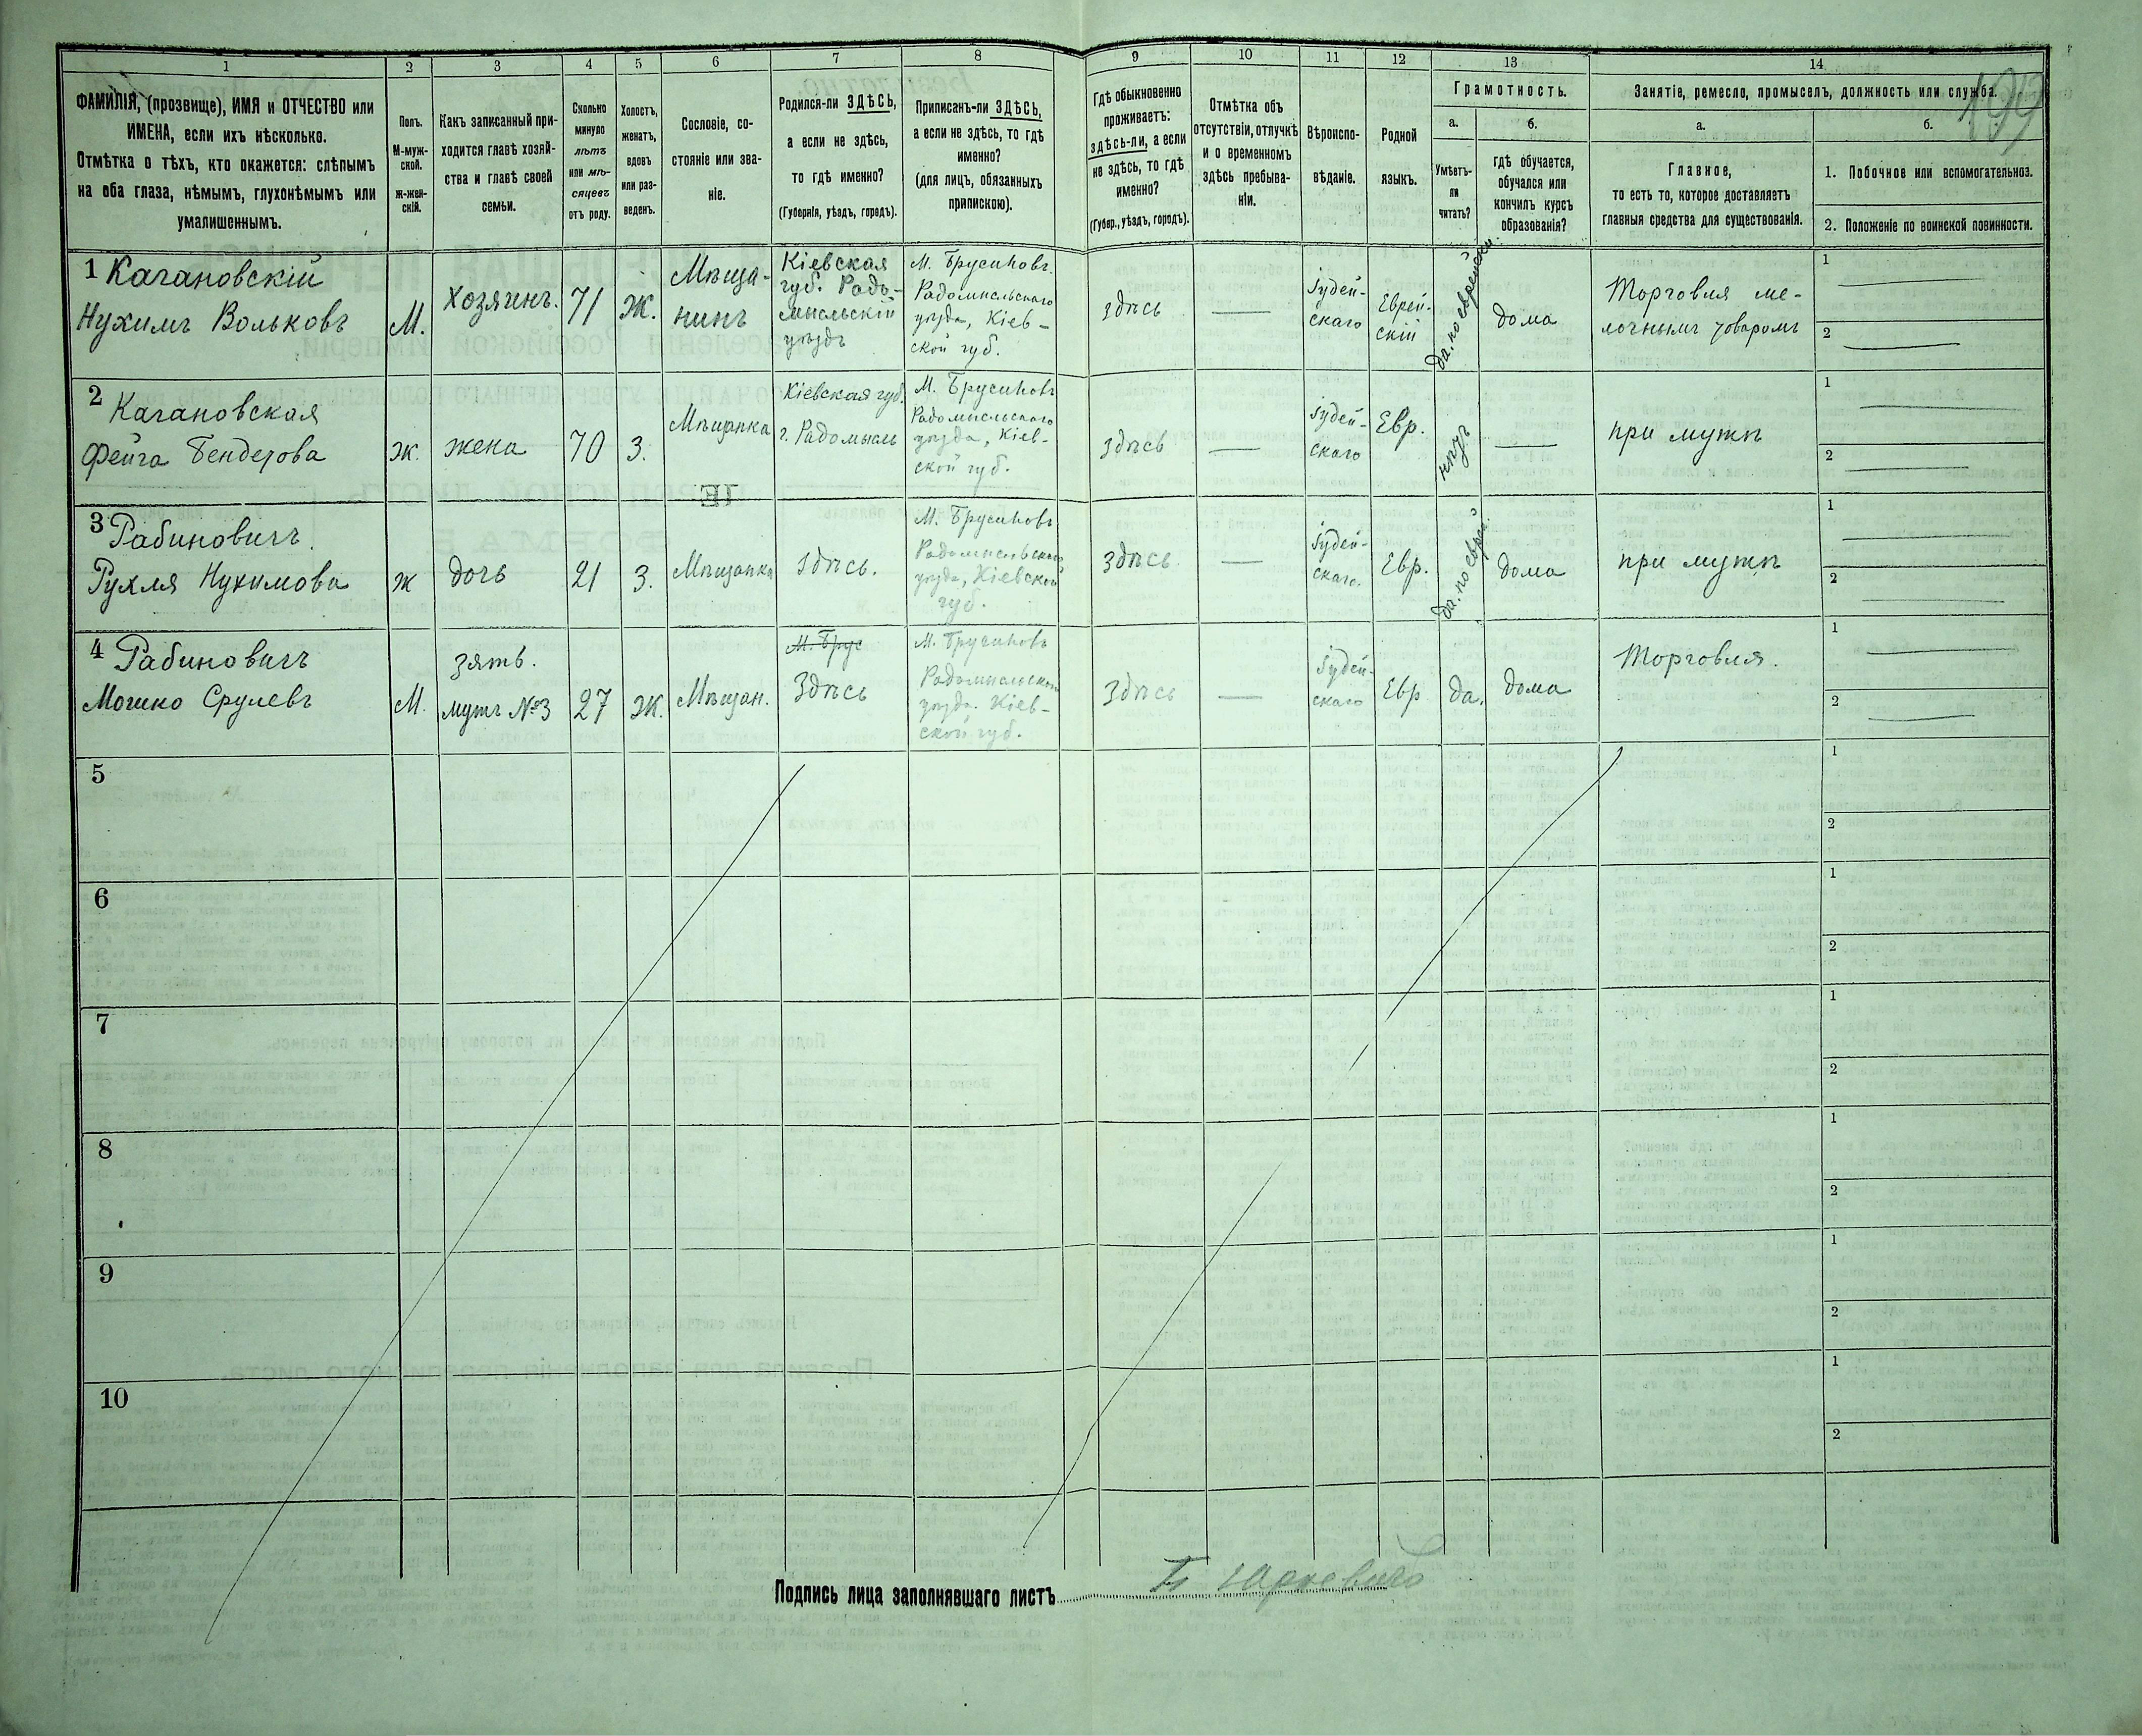 1 2 3 4 5 6 7 8 9 10 11 12 13 14
199
ФАМИЛІЯ, (прозвище), ИМЯ и ОТЧЕСТВО или
ИМЕНА, если ихъ нѣсколько.
Отмѣтка о тѣхъ, кто окажется: слѣпымъ
на оба глаза, нѣмымъ, глухонѣмымъ или
умалишеннымъ.
Полъ.
М-муж-
ской.
ж-жен-
скій.
Какъ записанный при-
ходится главѣ хозяй-
ства и главѣ своей
семьи.
Сколько
минуло
лѣтъ
или мѣ-
сяцевъ
отъ роду.
Холостъ,
женатъ,
вдовъ
или раз-
веденъ.
Сословіе, со-
стояніе или зва-
ніе.
Родился-ли ЗДѢСЬ,
а если не здѣсь,
то гдѣ именно?
(Губернія, уѣздъ, городъ).
Приписанъ-ли ЗДѢСЬ,
а если не здѣсь, то гдѣ
именно?
(для лицъ, обязанныхъ
припискою).
Гдѣ обыкновенно
проживаетъ:
здѣсь-ли, а если
не здѣсь, то гдѣ
именно?
(Губер., уѣздъ, городъ).
Отмѣтка объ
отсутствіи, отлучкѣ
и о временномъ
здѣсь пребыва-
ніи.
Вѣроиспо-
вѣданіе.
Родной
языкъ.
Грамотность.
а.
Умѣетъ-
ли
читать?
б.
гдѣ обучается,
обучался или
кончилъ курсъ
образованія?
Занятіе, ремесло, промыселъ, должность или служба.
а.
Главное,
то есть то, которое доставляетъ
главныя средства для существованія.
б.
1. Побочное или вспомогательное.
2. Положеніе по воинской повинности.
1 Кагановскій
Нухимъ Вольковъ
М.
Хозяинъ.
71
Ж.
Мѣща-
нинъ
Кіевская
губ. Радо-
мысльскій
уѣздъ
М. Брусиловъ.
Радомысльскаго
уѣзда, Кіев-
ской губ.
здѣсь
Іудей-
скаго
Еврей-
скій
да, по еврейски.
дома
Торговля ме-
лочнымъ товаромъ
1
2
2 Кагановская
Фейга Бендетова
Ж.
жена
70
З.
Мѣщанка
Кіевская губ.
г. Радомысль
М. Брусиловъ
Радомысльскаго
уѣзда, Кіев-
ской губ.
здѣсь
Іудей-
скаго
Евр.
нѣтъ
при мужѣ
1
2
3 Рабиновичъ
Рухля Нухимова
Ж
дочь
21
З.
Мѣщанка
здѣсь.
М. Брусиловъ
Радомысльскаго
уѣзда, Кіевской
губ.
Здѣсь
Іудей-
скаго.
Евр.
да, по еврей.
дома
при мужѣ
1
2
4 Рабиновичъ
Мошко Срулевъ
М.
зять.
мужъ №3
27
Ж.
Мѣщан.
М. Брус
Здѣсь
М. Брусиловъ
Радомысльскаго
уѣзда. Кіев-
ской губ.
Здѣсь
Іудей-
скаго
Евр
да.
дома
Торговля.
1
2
5
1
2
6
1
2
7
1
2
8
1
2
9
1
2
10
1
2
Подпись лица заполнявшаго листъ